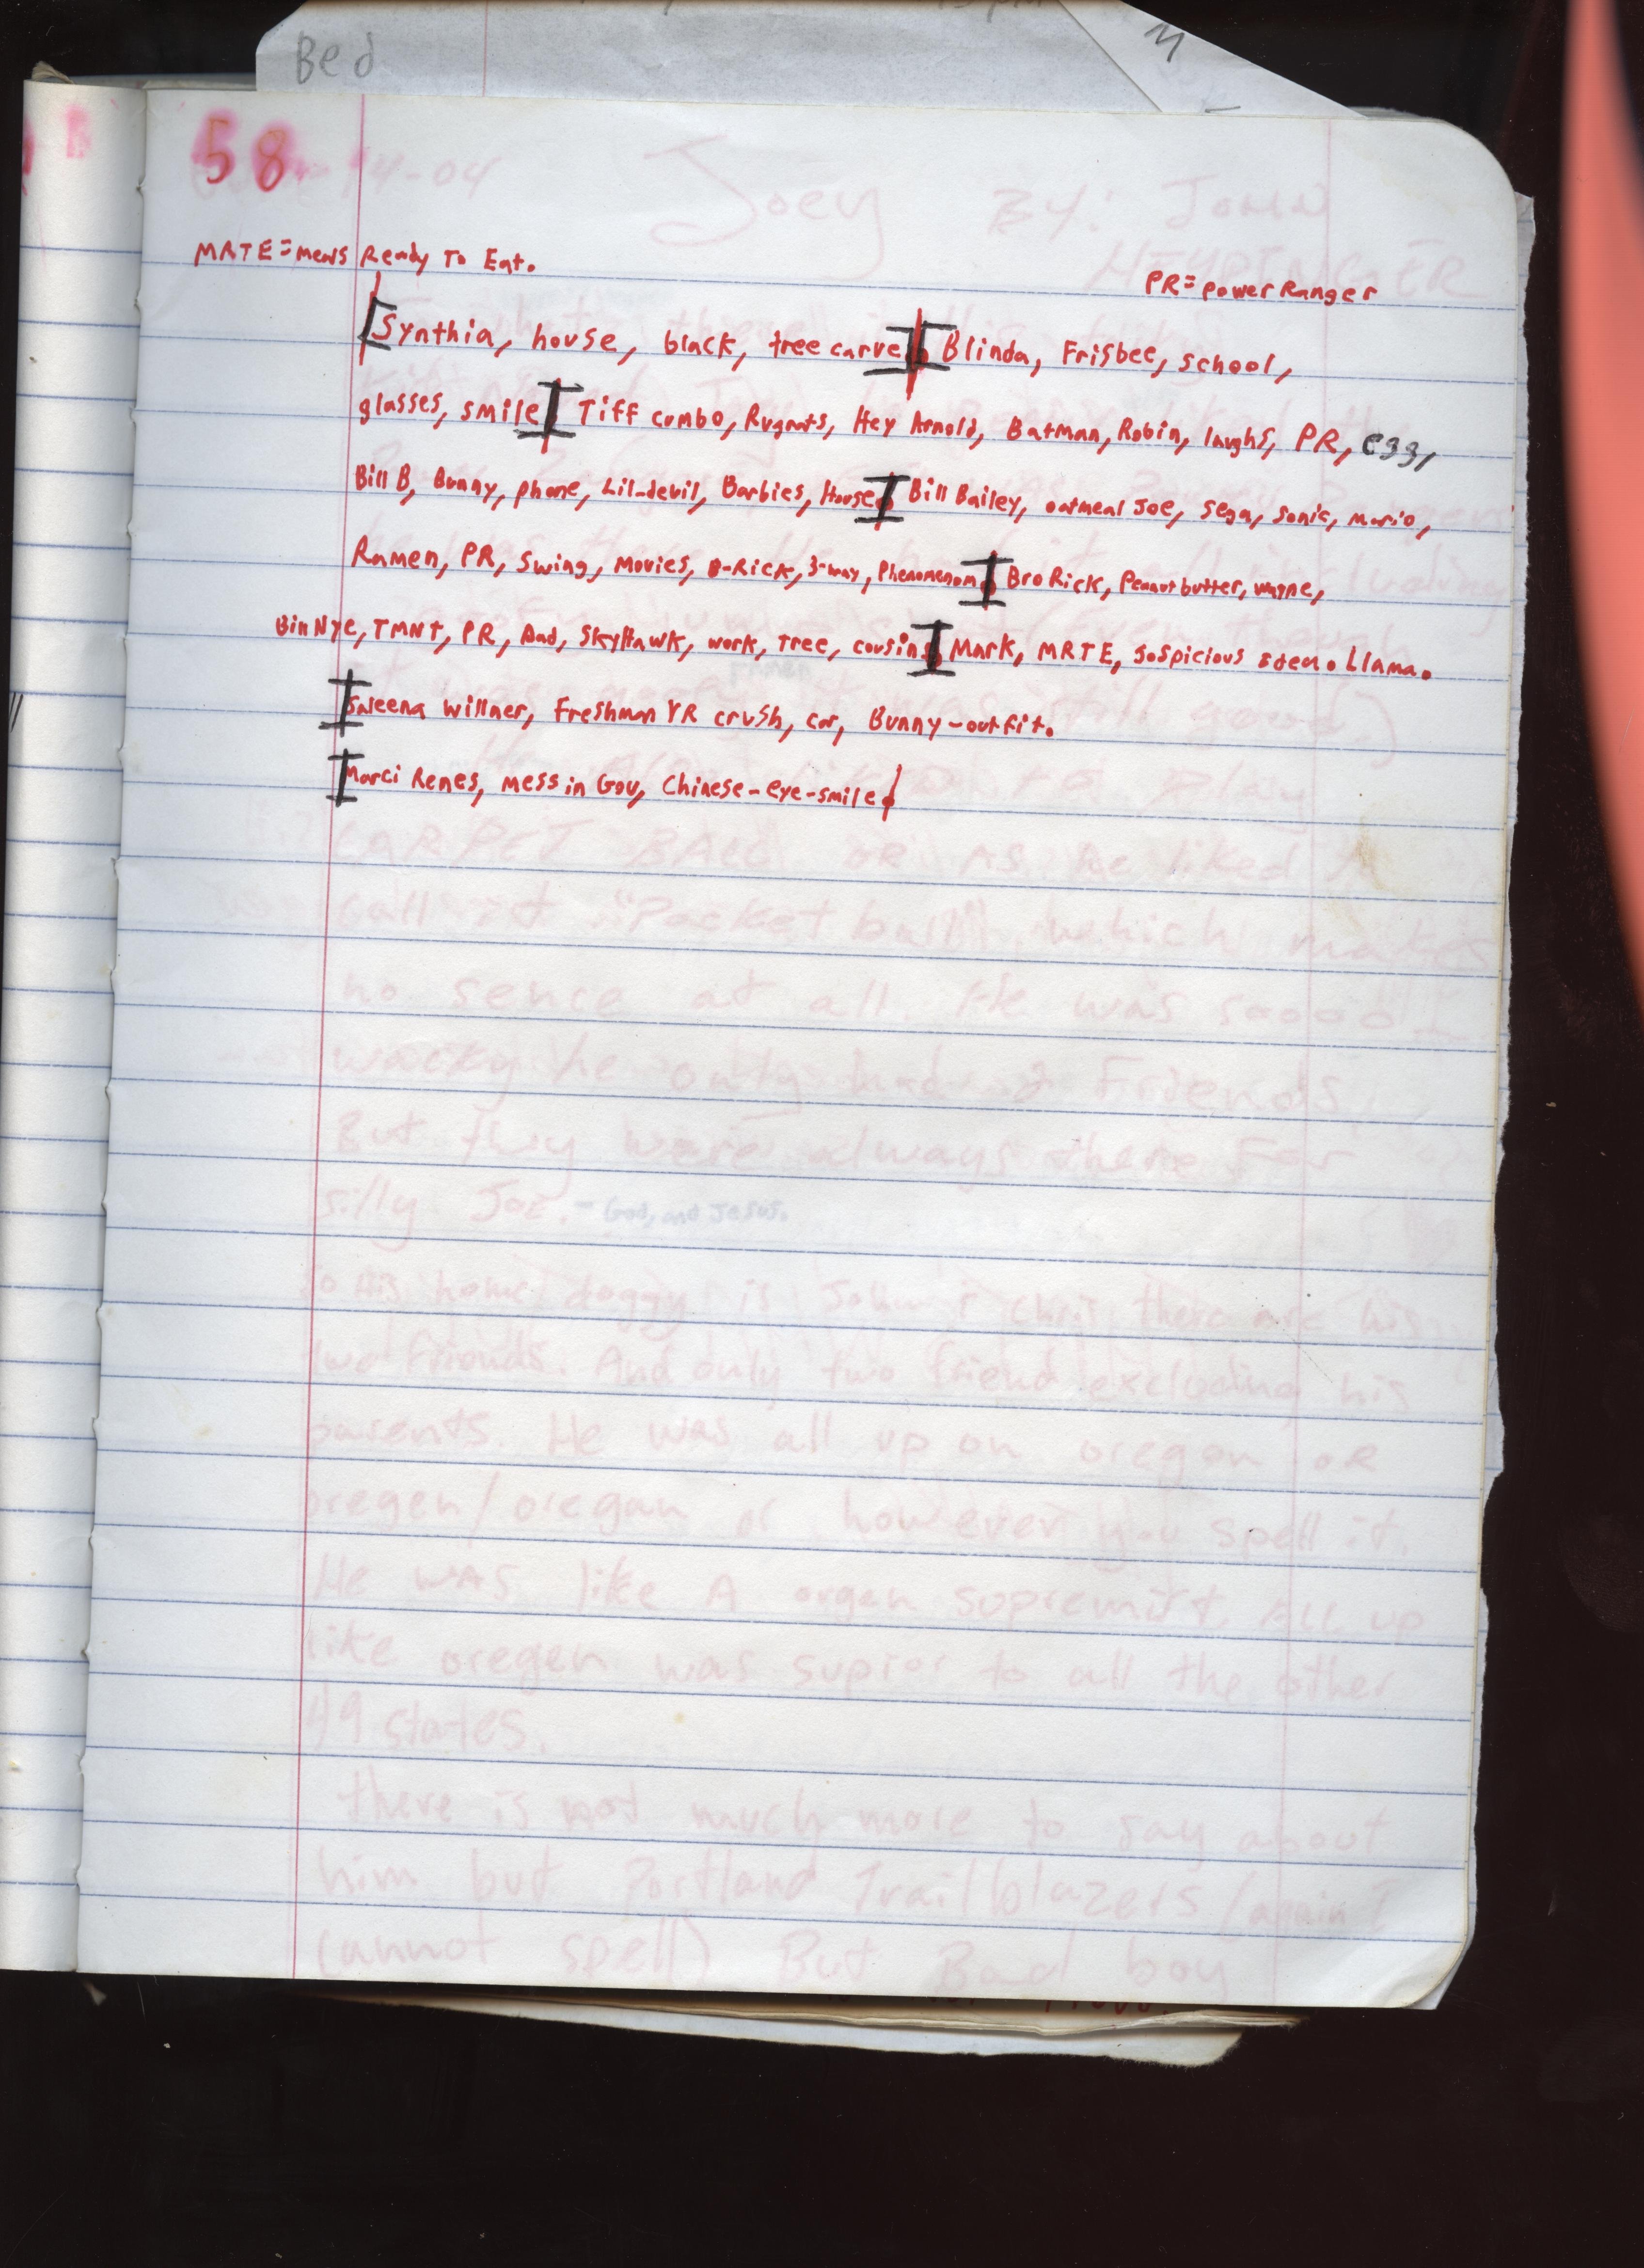 Bed
M
58
MRTE=meals Ready To Eat.
PR=Power Ranger
[Synthia, house, black, tree carve.][Blinda, Frisbee, school,
glasses, smile.][Tiff combo, Rugrats, Hey Arnold, Batman, Robin, laughs, PR, egg,
Bill B, Bunny, phone, Lil-devil, Barbies, House.][Bill Bailey, oatmeal Joe, Sega, Sonic, Mario,
Ramen, PR, Swing, Movies, B-Rick, 3-way, Phenomenom.][Bro Rick, Peanut butter, wayne,
Bill Nye, TMNT, PR, Dad, SkyHawk, work, Tree, cousin.][Mark, MRTE, Suspicious Llama.
][Saleena Willner, Freshman YR crush, car, Bunny-outfit.
][Marci Renes, mess in Gov, Chinese-eye-smile.
Joey BY: JOHN
CARPET BALL OR AS he liked to
call it "Pocket ball", which makes
no sence at all. He was soooo
wacky he only had 2 Friends.
But they were always there For
silly Joe. - God, and Jesus.
So his home doggy is John & Chris there are his
two friends. And only two friend excluding his
parents. He was all up on oregon OR
oregen/oregan or however you spell it.
He was like A orgen supremist. All up
like oregen was suprior to all the other
49 states.
there is not much more to say about
him but Portland Trailblazers (again I
cannot spell) But Bad boy